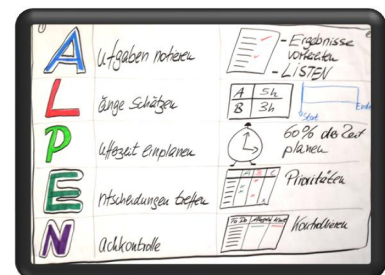 Aufgaben notieren
- Ergebnisse
vorbereiten
- LISTEN
Länge schätzen
A 5h
B 3h
Start
Ende
Pufferzeit einplanen
60% der Zeit
planen
Entscheidungen treffen
A B C
Prioritäten
Nachkontrolle
To Do
Kontrollieren